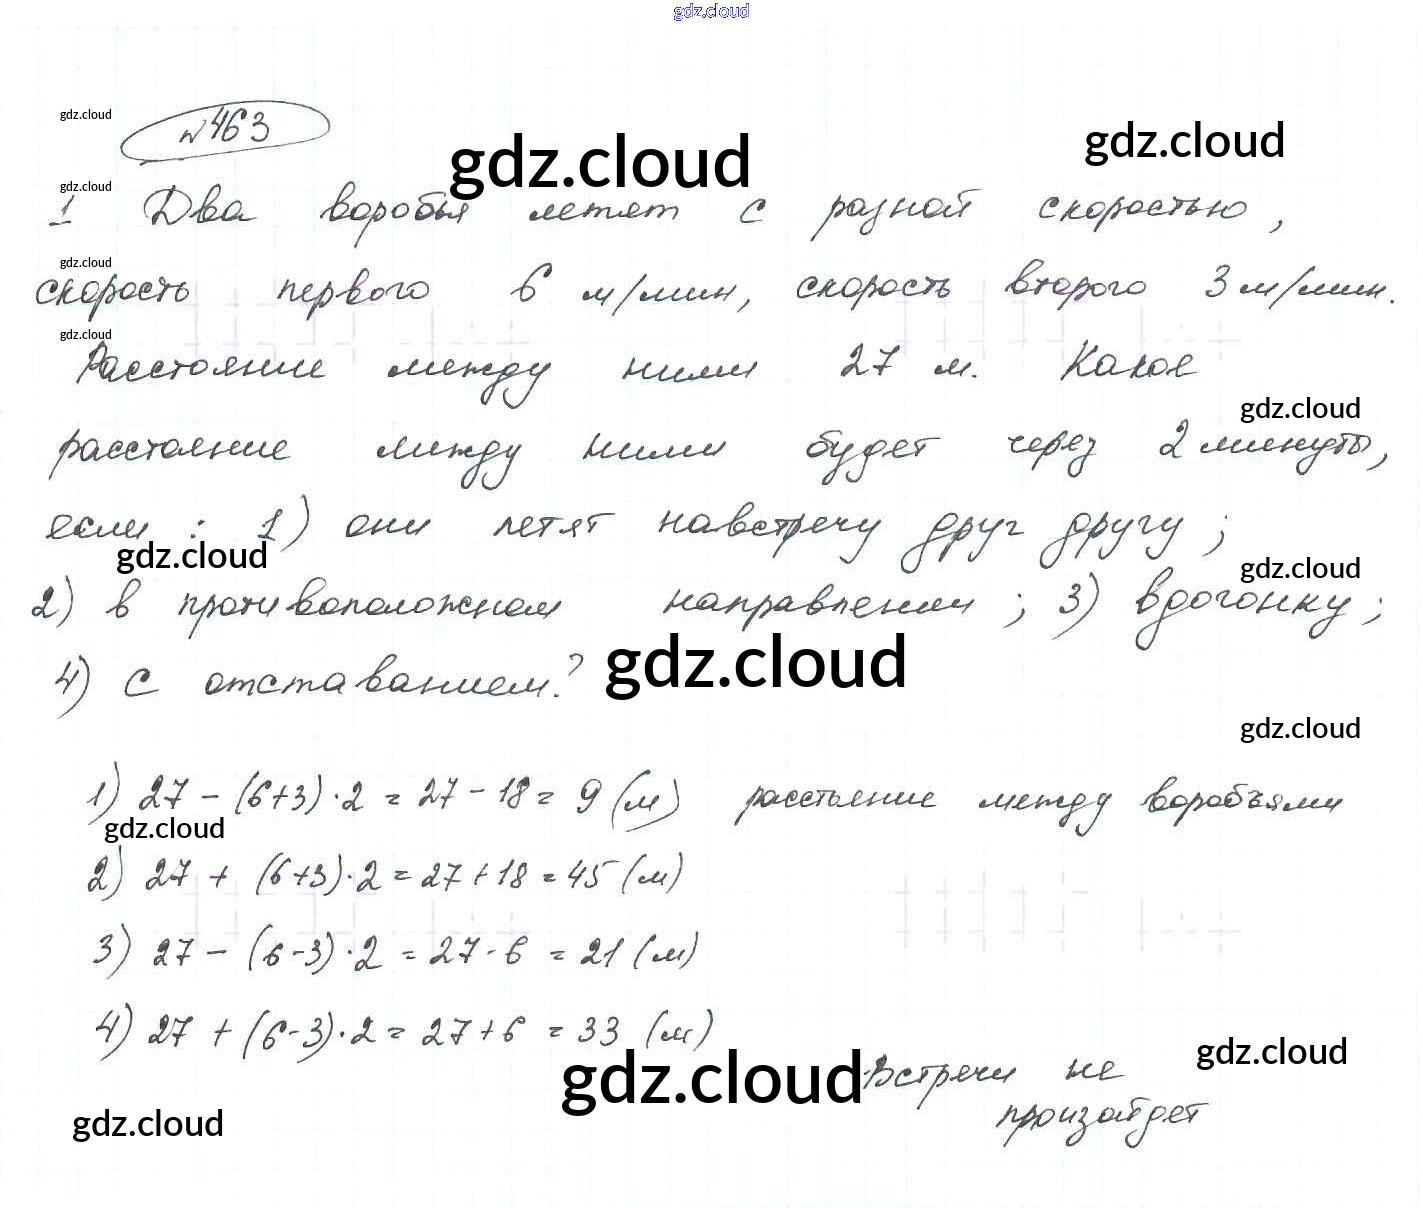 gdz.cloud
gdz.cloud
№463
gdz.cloud
gdz.cloud
gdz.cloud
1 Два воробья летят с разной скоростью,
gdz.cloud
скорость первого 6 м/мин, скорость второго 3 м/мин.
gdz.cloud
Расстояние между ними 27 м. Какое
gdz.cloud
расстояние между ними будет через 2 минуты,
если : 1) они летят навстречу друг другу ;
gdz.cloud
gdz.cloud
2) в противоположном направлении ; 3) вдогонку ;
4) с отставанием.?
gdz.cloud
gdz.cloud
1) 27 - (6+3) · 2 = 27 - 18 = 9 (м) расстояние между воробьями
gdz.cloud
2) 27 + (6+3) · 2 = 27 + 18 = 45 (м)
3) 27 - (6-3) · 2 = 27 - 6 = 21 (м)
4) 27 + (6-3) · 2 = 27 + 6 = 33 (м)
gdz.cloud
Встречи не
gdz.cloud
произойдет
gdz.cloud